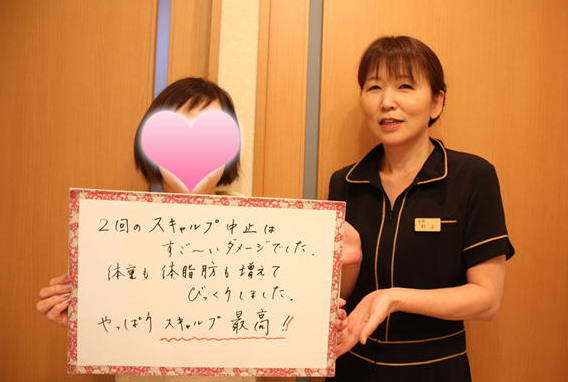 2回のスキャルプ中止は
すご〜いダメージでした.
体重も体脂肪も増えて
びっくりしました.
やっぱりスキャルプ最高!!